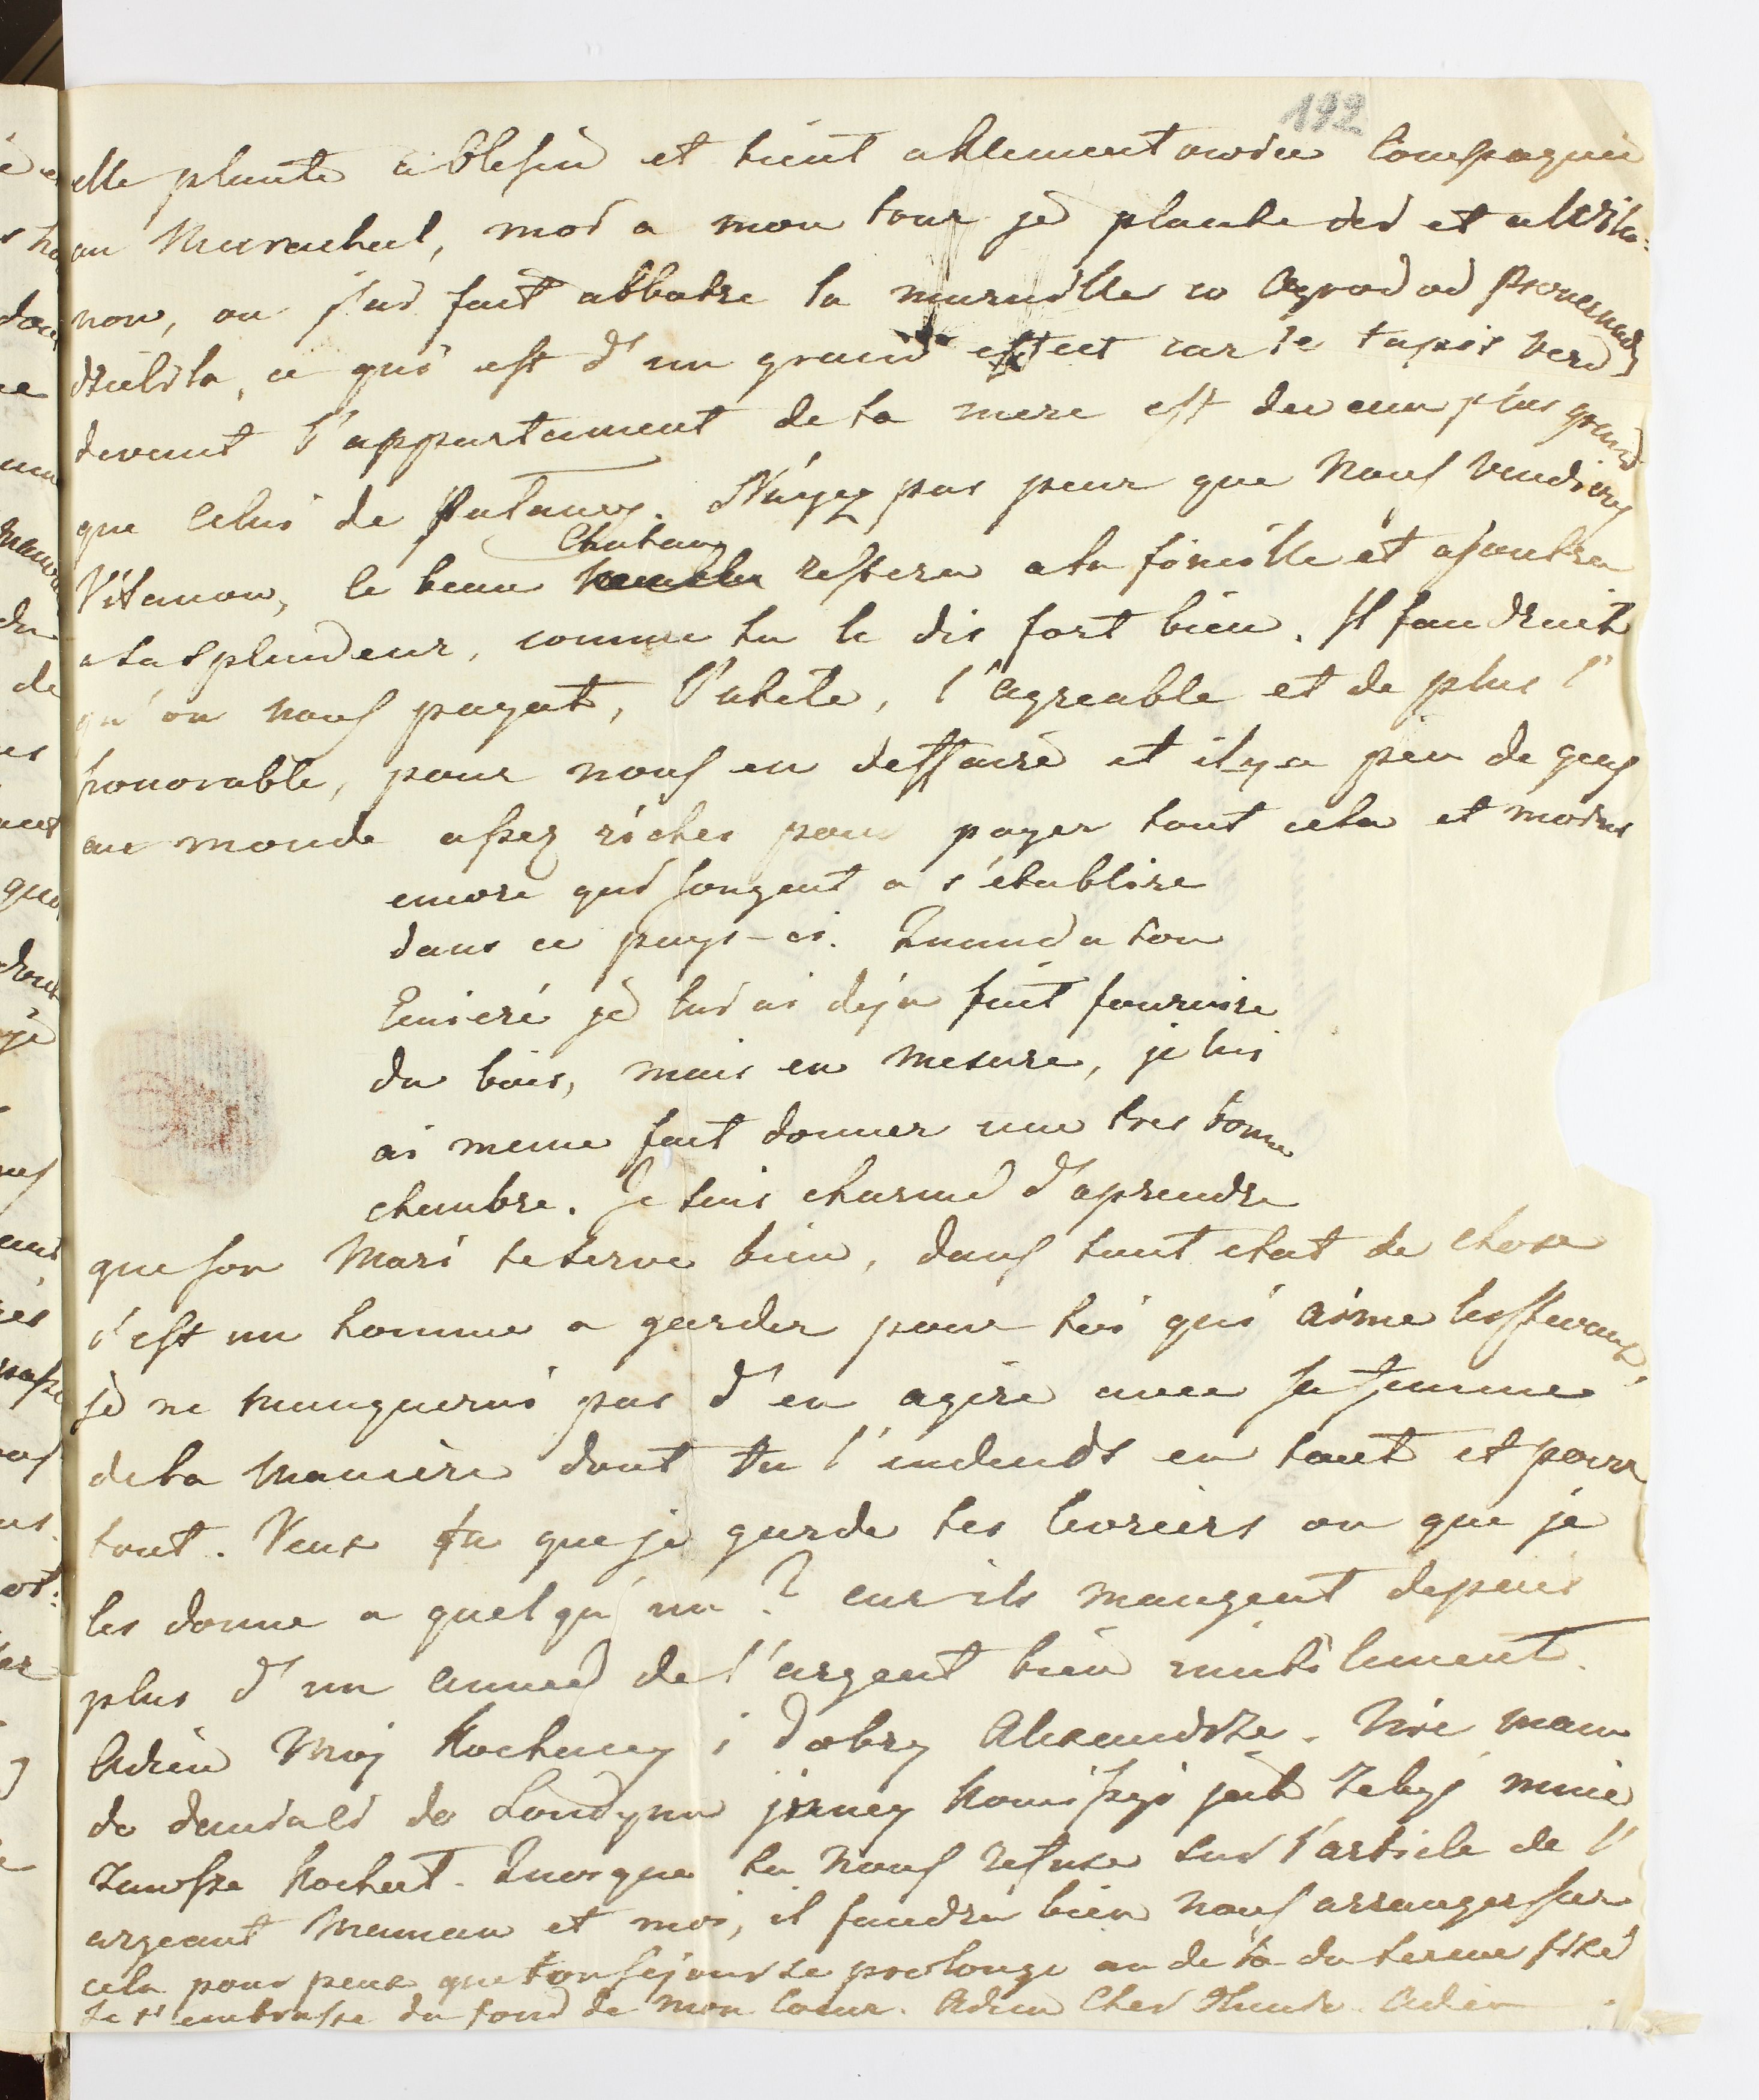 192
elle plante a Blesin et tient alternativement Compagnie
au Marechal, moi a mon tour je plante ici et a Wila-
now, ou j'ai fait abbatre la muraille w Ogrodzie
Krolika, ce qui est d'un grand effect car le tapis verd
devant l'appartement de ta mere est devenu plus grand
que celui de Pulawy. N'ayez pas peur que nous vendions
Vilanow, le beau Chateau restera a la famille et ajoutera
a sa splendeur, comme tu le dis fort bien. Il faudrait
qu'on nous payat, l'utile, l'agreable et de plus l'
honorable, pour nous en deffaire et il y a peu de gens
au monde assez riches pour payer tout cela et moins
encore qui songent a s'établire
dans ce pays-ci. Quand a ton
je lui ai deja fait fournire
du bois, mais en mesure, je lui
ai meme fait donner une tres bonne
chambre. Je suis charmé d'aprendre
que son Mari te serve bien, dans tout etat de chose
c'est un homme a garder pour toi qui aime les chevaux,
je ne manquerai pas d'en agire avec sa femme
de la maniere dont tu l'entends en tout et pour
tout. Veux tu que je garde tes levriers ou que je
les donne a quelqu'un? car ils mangent depuis
plus d'un année de l'argent bien inutilement.
Adieu Moj Kochany i dobry Alexandrze. Nie mam
do dania ci do Londynu inney kommissyi jak zebyś mnie
zawsze kochał. Quoique tu nous refuse sur l'article de l'
argeant Maman et moi, il faudra bien nous arranger sur
cela pour peux que ton sejour se prolonge au de la du terme fixé
Je t'embrasse du fond de mon Coeur. Adieu Cher Adieu